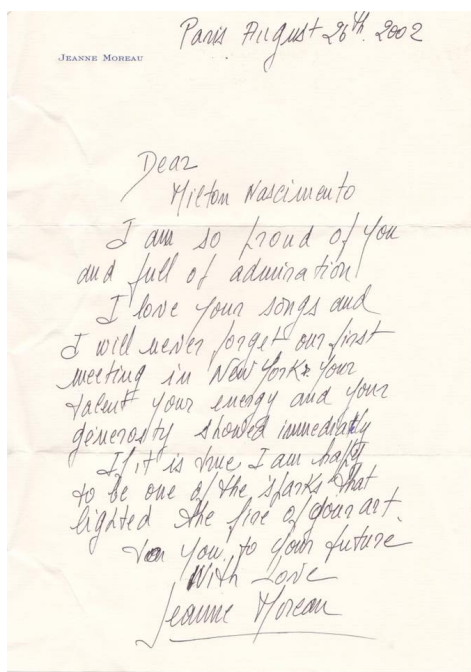 Paris August 26th. 2002
JEANNE MOREAU
Dear
Milton Nascimento
I am so proud of you
and full of admiration
I love your songs and
I will never forget our first
meeting in New York. Your
talent your energy and your
generosity showed immediately
If it is true I am happy
to be one of the sparks that
lighted the fire of your art.
you to your future
With Love
Jeanne Moreau